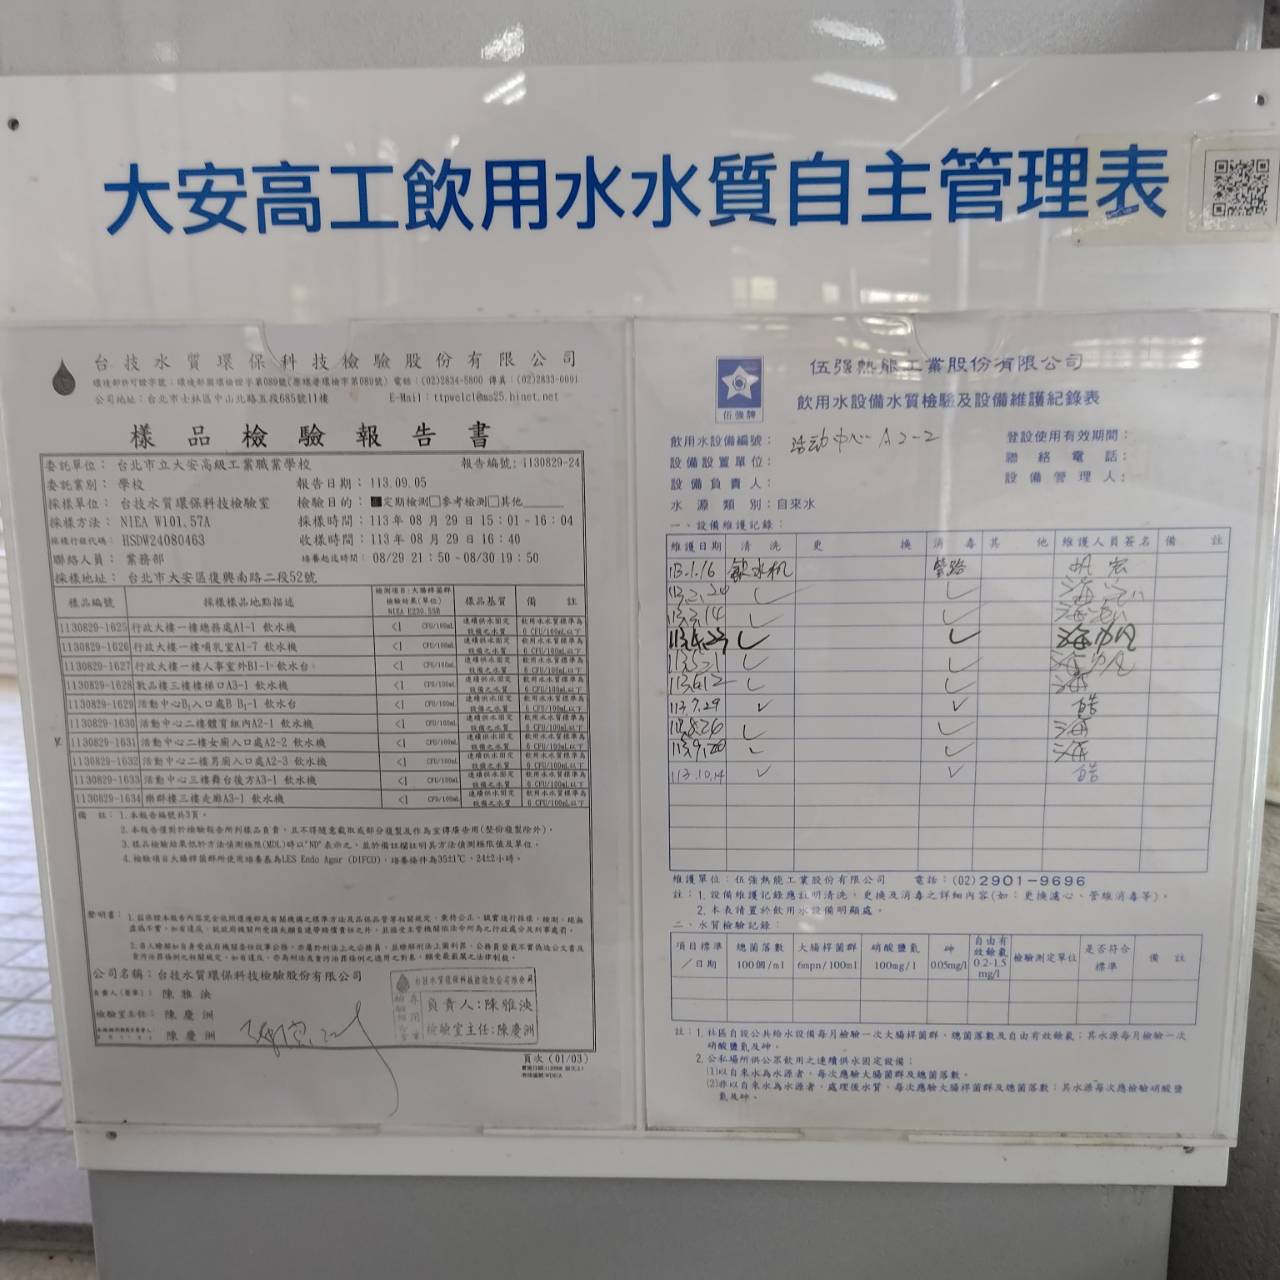 大安高工飲用水水質自主管理表
台技水質環保科技檢驗股份有限公司
公司地址：台北市士林區中山北路五段685號11樓
E-Mail：ttpwelcl@ms25.hinet.net
樣品檢驗報告書
委託單位：台北市立大安高級工業職業學校 報告編號：1130829-24
委託業別：學校 報告日期：113.09.05
採樣單位：台技水質環保科技檢驗室 檢驗目的：■定期檢測□參考檢測□其他
採樣方法：NIEA W101.57A 採樣時間：113年08月29日15:01-16:04
採樣行程代碼：HSDW24080463 收樣時間：113年08月29日16:40
聯絡人員：業務部 培養起迄時間：08/29 21:50-08/30 19:50
採樣地址：台北市大安區復興南路二段52號
樣品編號 採樣樣品地點描述 檢測項目：大腸桿菌群 檢驗結果(單位) NIEA E230.55B 樣品基質 備註
1130829-1625 行政大樓一樓總務處A1-1 飲水機 <1 CFU/100mL 連續供水固定設備之水質 飲用水水質標準為6 CFU/100mL以下
1130829-1626 行政大樓一樓哺乳室A1-7 飲水機 <1 CFU/100mL 連續供水固定設備之水質 飲用水水質標準為6 CFU/100mL以下
1130829-1627 行政大樓一樓人事室外B1-1 飲水台 <1 CFU/100mL 連續供水固定設備之水質 飲用水水質標準為6 CFU/100mL以下
1130829-1628 敦品樓三樓樓梯口A3-1 飲水機 <1 CFU/100mL 連續供水固定設備之水質 飲用水水質標準為6 CFU/100mL以下
1130829-1629 活動中心B1入口處B B1-1 飲水台 <1 CFU/100mL 連續供水固定設備之水質 飲用水水質標準為6 CFU/100mL以下
1130829-1630 活動中心二樓體育組內A2-1 飲水機 <1 CFU/100mL 連續供水固定設備之水質 飲用水水質標準為6 CFU/100mL以下
1130829-1631 活動中心二樓女廁入口處A2-2 飲水機 <1 CFU/100mL 連續供水固定設備之水質 飲用水水質標準為6 CFU/100mL以下
1130829-1632 活動中心二樓男廁入口處A2-3 飲水機 <1 CFU/100mL 連續供水固定設備之水質 飲用水水質標準為6 CFU/100mL以下
1130829-1633 活動中心三樓舞台後方A3-1 飲水機 <1 CFU/100mL 連續供水固定設備之水質 飲用水水質標準為6 CFU/100mL以下
1130829-1634 樂群樓三樓走廊A3-1 飲水機 <1 CFU/100mL 連續供水固定設備之水質 飲用水水質標準為6 CFU/100mL以下
備註：1.本報告編號共3頁。
2.本報告僅對於檢驗報告所列樣品負責，且不得隨意截取或部分複製及作為宣傳廣告用(整份複製除外)。
3.樣品檢驗結果低於方法偵測極限(MDL)時以"ND"表示之，並於備註欄註明其方法偵測極限值及單位。
4.檢驗項目大腸桿菌群所使用培養基為LES Endo Agar (DIFCO)，培養條件為35±1℃、24±2小時。
公司名稱：台技水質環保科技檢驗股份有限公司
負責人(簽章)：陳雅泱
檢驗室主任：陳慶洲
陳慶洲
台技水質環保科技檢驗股份有限公司
負責人：陳雅泱
檢驗室主任：陳慶洲
頁次(01/03)
伍強牌
伍強熱能工業股份有限公司
飲用水設備水質檢驗及設備維護紀錄表
飲用水設備編號：活动中心A2-2 登設使用有效期間：
設備設置單位： 聯絡電話：
設備負責人： 設備管理人：
水源類別：自來水
一、設備維護記錄：
維護日期 清洗 更換 消毒 其他 維護人員簽名 備註
113.1.16 飲水机 管路
113.2.20 ✓ ✓
113.3.14 ✓ ✓
✓ ✓
113.5.21 ✓ ✓
113.6.12 ✓ ✓ 海
113.7.29 ✓ ✓ 皓
113.8.26 ✓ ✓ 海
113.9.20 ✓ ✓ 海
113.10.14 ✓ ✓ 皓
維護單位：伍強熱能工業股份有限公司 電話：(02)2901-9696
註：1.設備維護記錄應註明清洗、更換及消毒之詳細內容(如：更換濾心、管線消毒等)。
2.本表請置於飲用水設備明顯處。
二、水質檢驗記錄：
項目標準/日期 總菌落數100個/ml 大腸桿菌群6mpn/100ml 硝酸鹽氮100mg/l 砷0.05mg/l 自由有效餘氯0.2-1.5mg/l 檢驗測定單位 是否符合標準 備註
註：1.社區自設公共給水設備每月檢驗一次大腸桿菌群、總菌落數及自由有效餘氯；其水源每月檢驗一次硝酸鹽氮及砷。
2.公私場所供公眾飲用之連續供水固定設備：
(1)以自來水為水源者，每次應驗大腸桿菌群及總菌落數。
(2)非以自來水為水源者，處理後水質，每次應驗大腸桿菌群及總菌落數；其水源每次應檢驗硝酸鹽氮及砷。